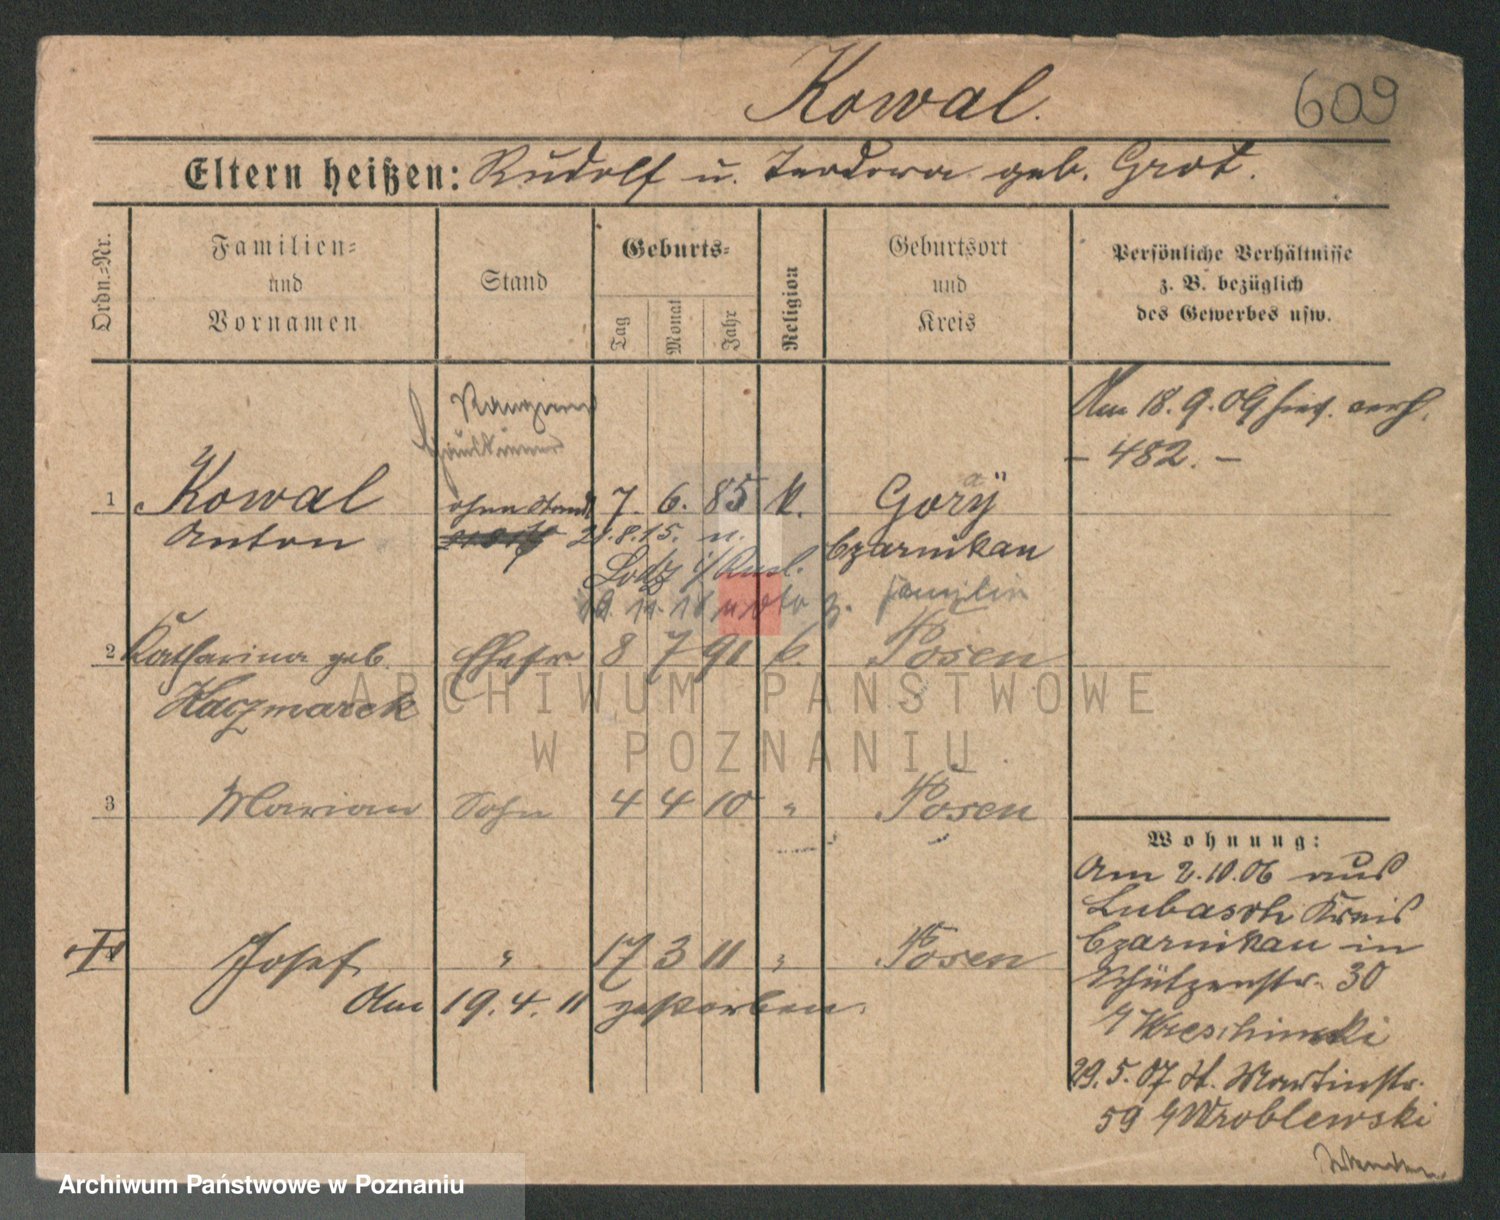 Kowal. 609
Eltern heißen: Rudolf u. Teodora geb. Grot.
Ordn.-Nr.
Familien-
und
Vornamen
Stand
Geburts-
Tag
Monat
Jahr
Religion
Geburtsort
und
Kreis
Persönliche Verhältnisse
z. B. bezüglich
des Gewerbes usw.
Am 18.9.09 hies. verh.
- 482. -
Rangierer
1 Kowal ohne Stand 7. 6. 85 k. Gorÿ
Anton 21.8.15. n. Czarnikau
Lodz i/Russl.
z. Familie
2 Katharina geb. Ehefr 8 7 91 k. Posen
Kaczmarek
3 Marian Sohn 4 4 10 " Posen
4 Josef " 17 3 11 " Posen
Am 19.4.11 gestorben.
Wohnung:
Am 2.10.06 aus
Lubasch Kreis
Czarnikau in
Schützenstr. 30
29.5.07 St. Martinstr.
59 b/Wroblewski
ARCHIWUM PAŃSTWOWE
W POZNANIU
Archiwum Państwowe w Poznaniu